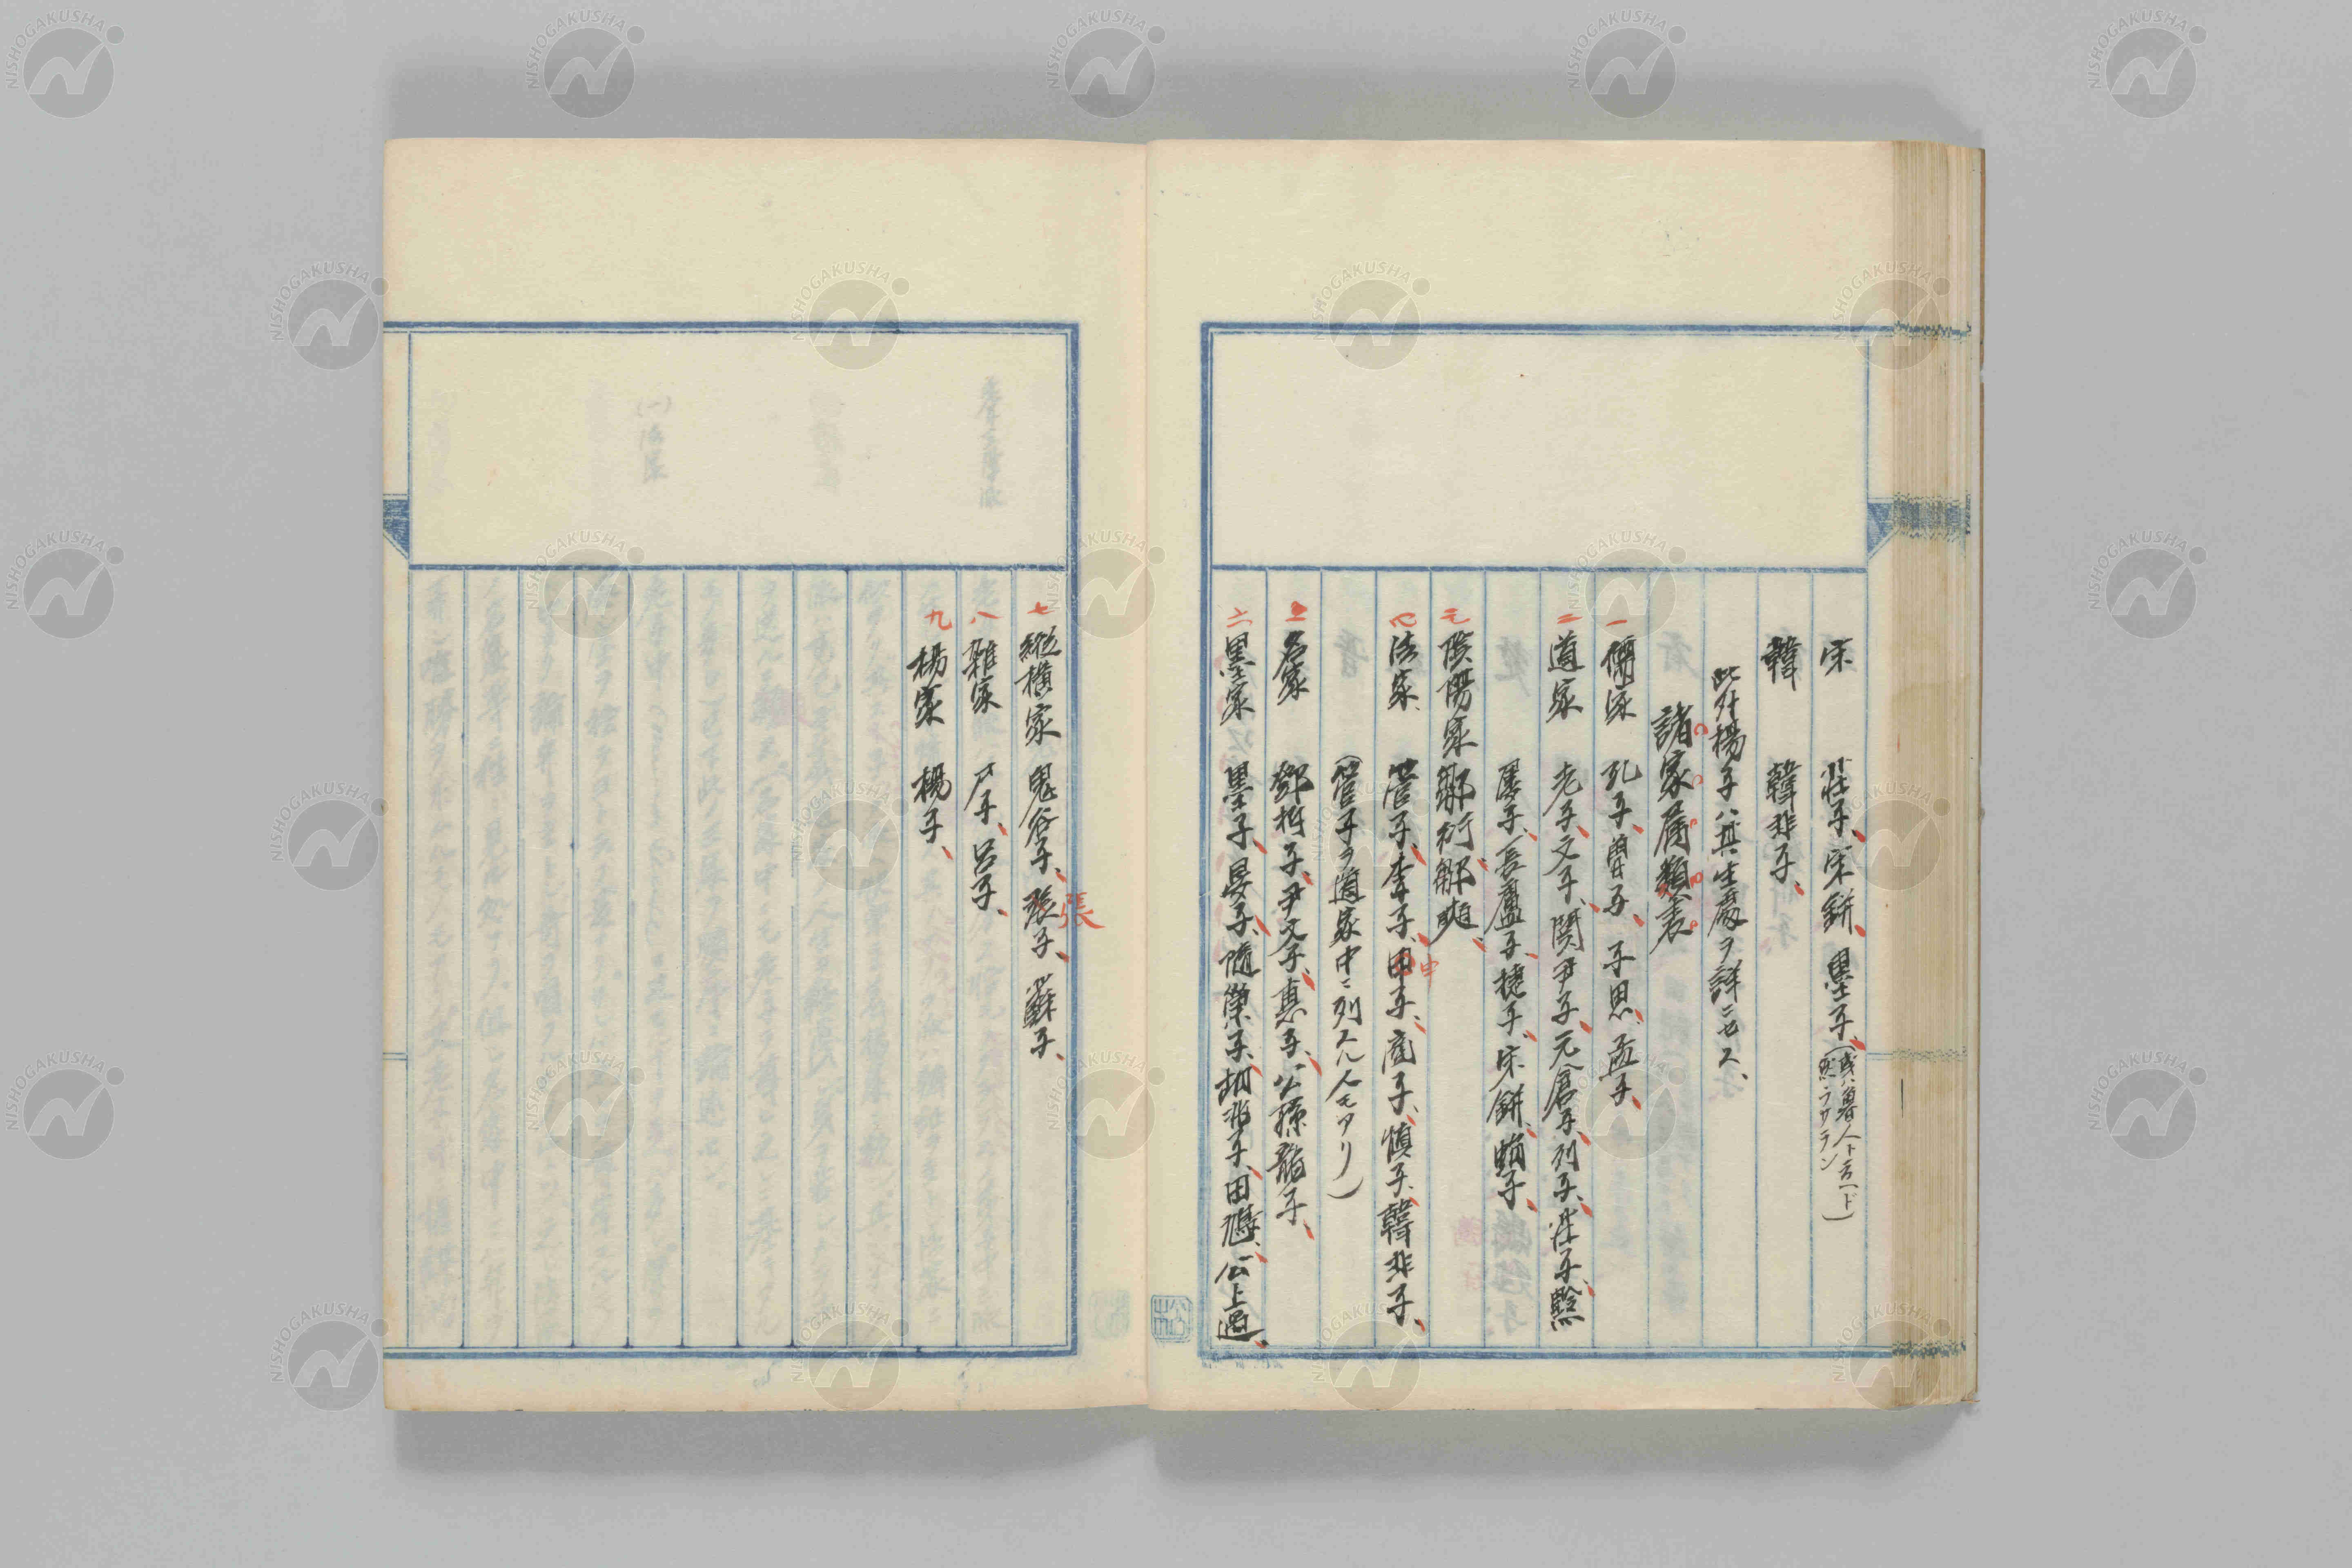 宋　荘子、宋鈃、墨子、(或ハ魯人ト言ヘド
然ラザラン)
韓　韓非子、
此外楊子ハ其生處ヲ詳ニセス、
諸家屬類表
一　儒家　孔子、曽子、子思、孟子、
二　道家　老子、文子、関尹子、元倉子、列子、荘子、黔
婁子、長盧子、捷子、宋鈃、蜎子、
三　陰陽家　鄒衍、鄒奭、
四　法家　管子、李子、申子、商子、慎子、韓非子、
(管子ヲ道家中ニ列スル人モアリ)
五　名家　鄧析子、尹文子、惠子、公孫龍子、
六　墨家　墨子、晏子、隨巢子、胡非子、田鳩、公上過、
七　縦横家　鬼谷子、張子、蘇子、
八　雜家　尸子、呂子、
九　楊家　楊子、